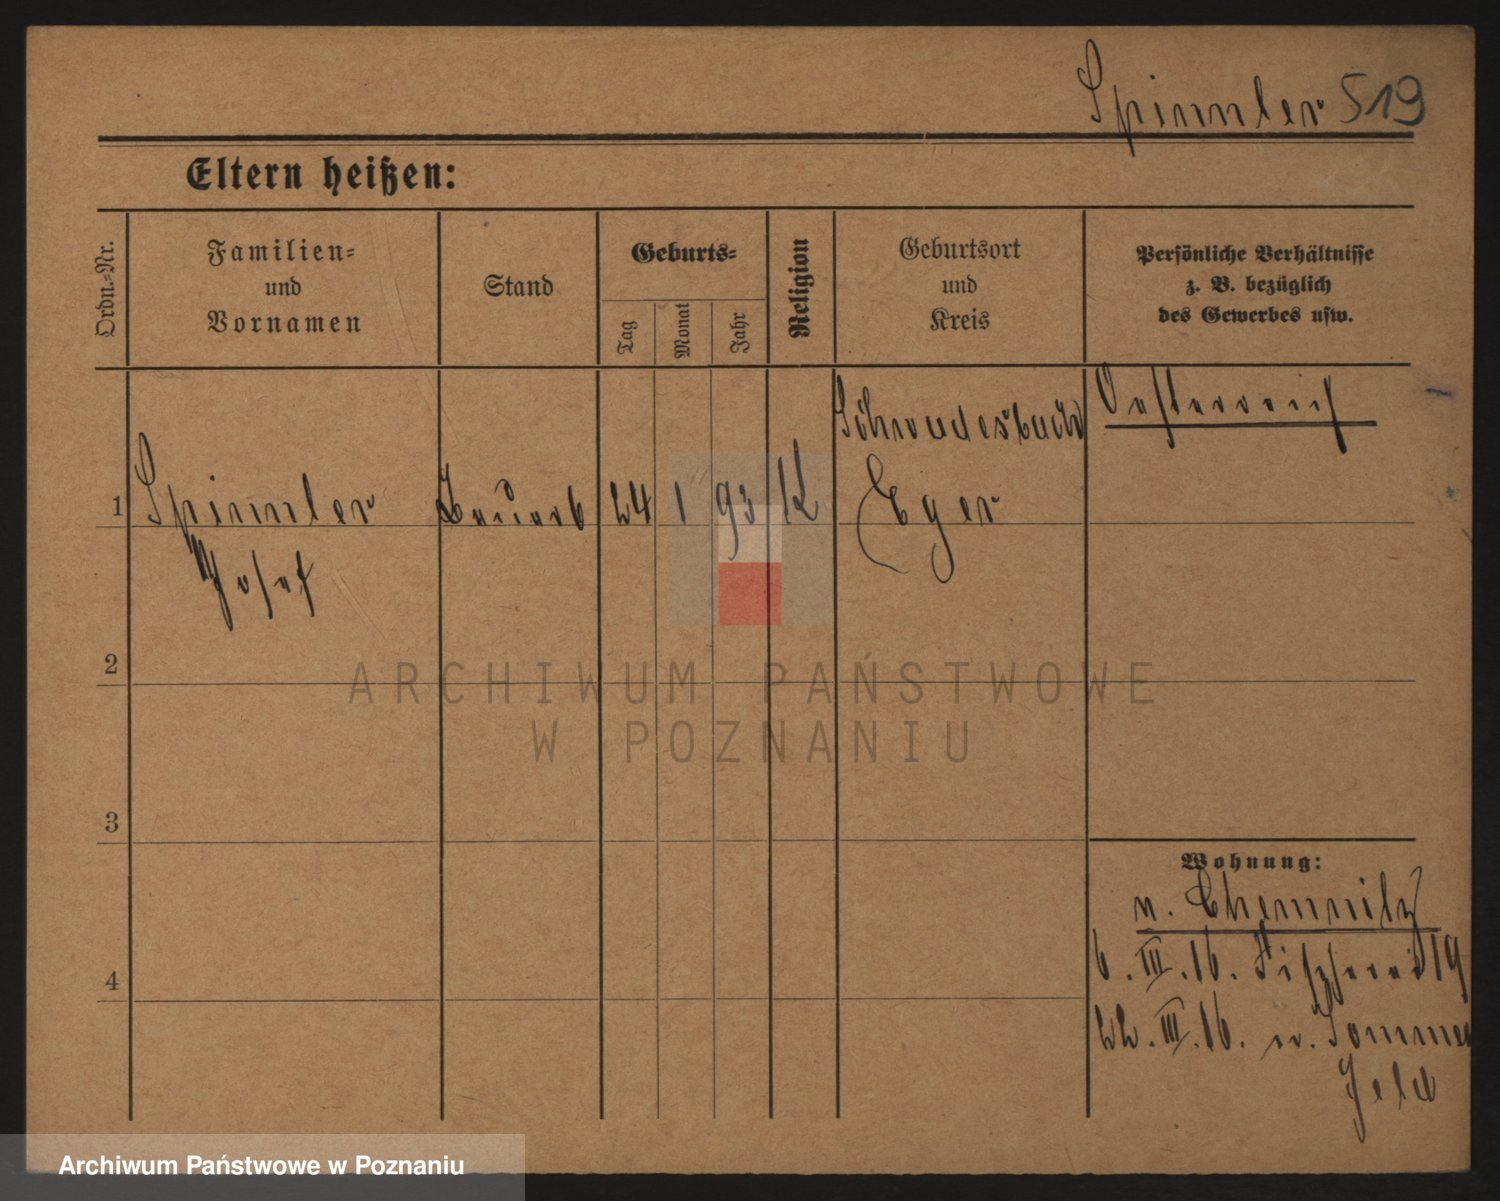 Spinnler 519
Eltern heißen:
Ordn.=Nr.
Familien=
und
Vornamen
Stand
Geburts=
Tag
Monat
Jahr
Religion
Geburtsort
und
Kreis
Persönliche Verhältnisse
z. B. bezüglich
des Gewerbes usw.
Oesterreich
1
Spinnler
24
1
93
K
Eger
Josef
2
ARCHIWUM PAŃSTWOWE
W POZNANIU
3
Wohnung:
v. Chemnitz
4
6. III. 16. Fischerei 19
22. III. 16. n. Sommer
feld
Archiwum Państwowe w Poznaniu